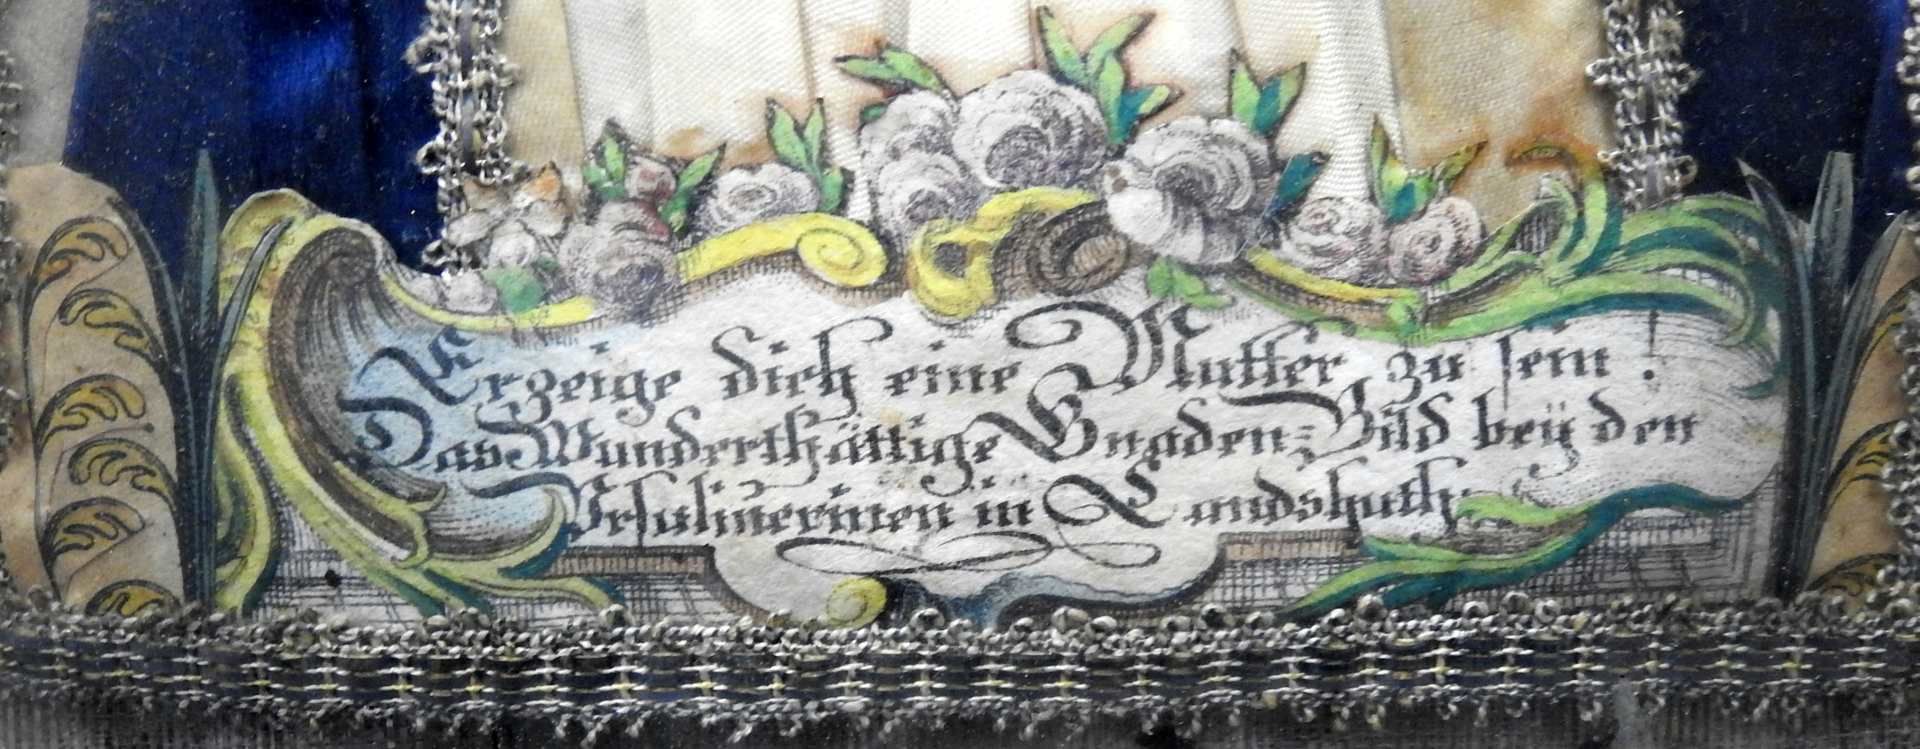 Erzeige dich eine Mutter zu sein!
Das Wunderthättige Gnaden-Bild beÿ den
Ursulinerinen in Landshuth.